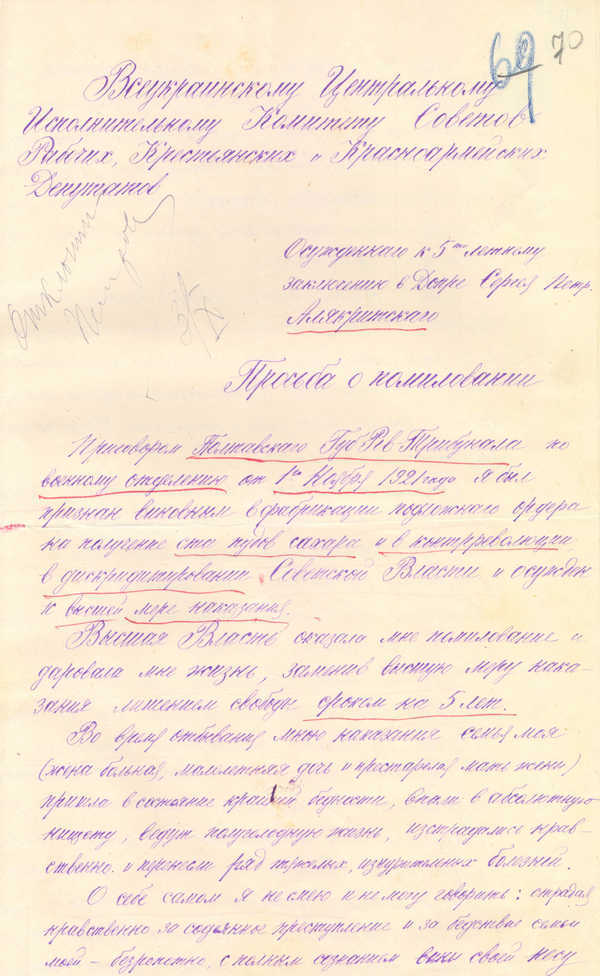 69 70
Всеукраинскому Центральному
Исполнительному Комитету Советов
Рабочих, Крестьянских и Красноармейских
Депутатов
Отклонить
Осужденнаго к 5ти летнему
заключению в Допре Сергея Петр.
Алякритскаго
Просьба о помиловании
Приговором Полтавскаго Губ Рев-Трибунала по
военному отделению от 1го Ноября 1921 года я был
признан виновным в фабрикации подложнаго ордера
на получение ста пудов сахара и в контрреволюции,
в дискридитировании Советской Власти и осужден
к высшей мере наказания.
Высшая Власть оказала мне помилование и
даровала мне жизнь, заменив высшую меру нака-
зания лишением свободы сроком на 5 лет.
Во время отбывания мною наказания семья моя
(жена больная, малолетняя дочь и престарелая мать жены)
пришла в состояние крайней бедности, впали в абсолютную
нищету, ведут полуголодную жизнь, исстрадались нрав-
ственно и перенесли ряд тяжелых, изнурительных болезней.
О себе самом я не смею и не могу говорить: страдая
нравственно за содеянное преступление и за бедствие семьи
моей – безропотно, с полным сознанием вины своей несу